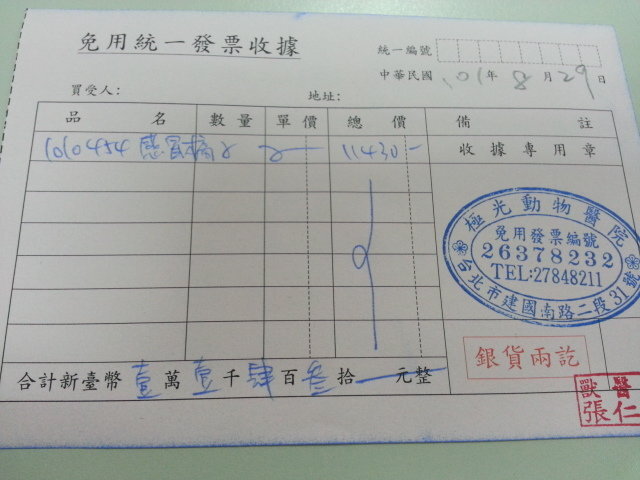 免用統一發票收據
統一編號
中華民國 101年 8月 29日
買受人: 地址:
品名 數量 單價 總價 備註
1010454 感冒 11430- 收據專用章
極光動物醫院
免用發票編號
26378232
TEL:27848211
台北市建國南路二段31號
銀貨兩訖
合計新臺幣壹萬壹千肆百參拾元整
獸醫
張仁